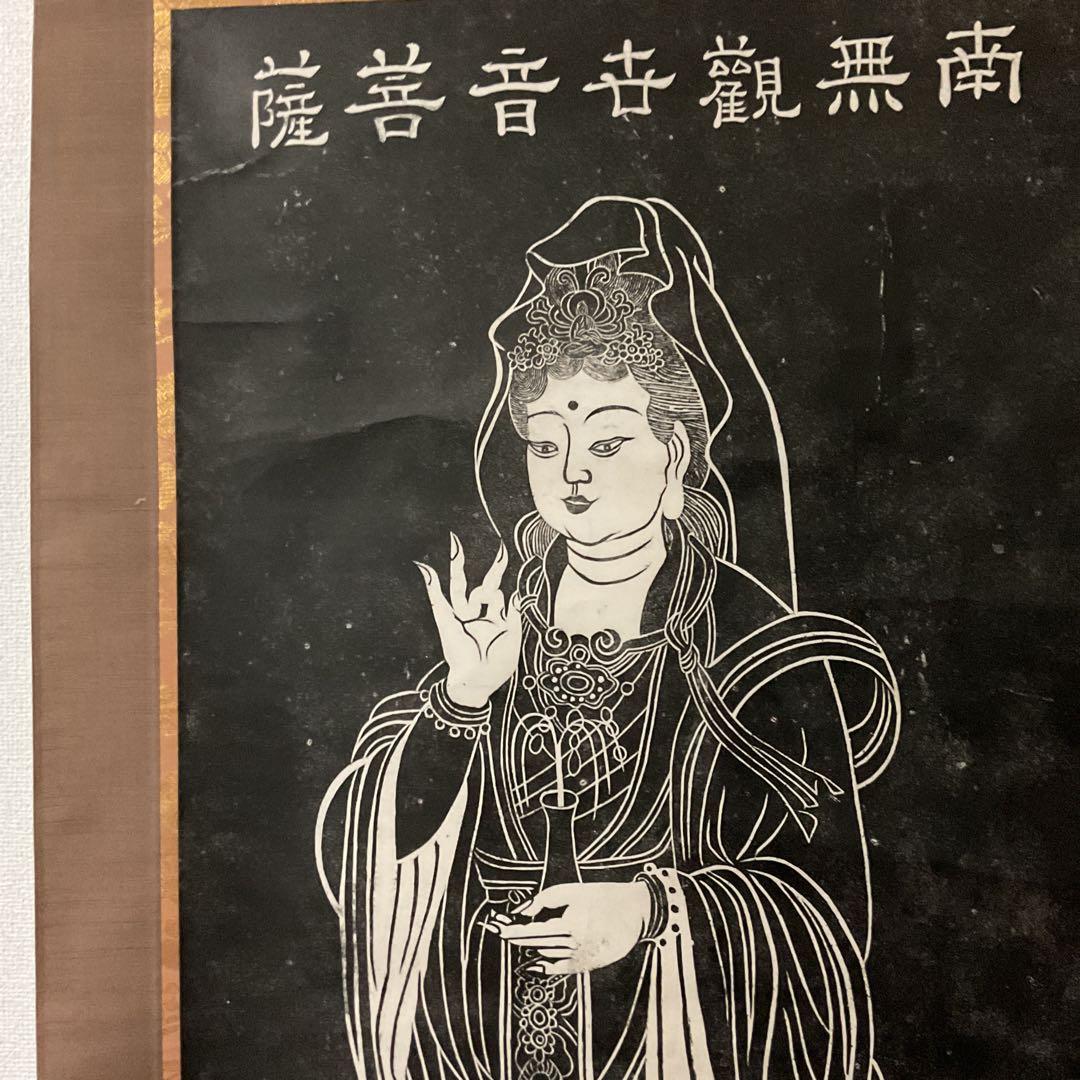 南無觀世音菩薩